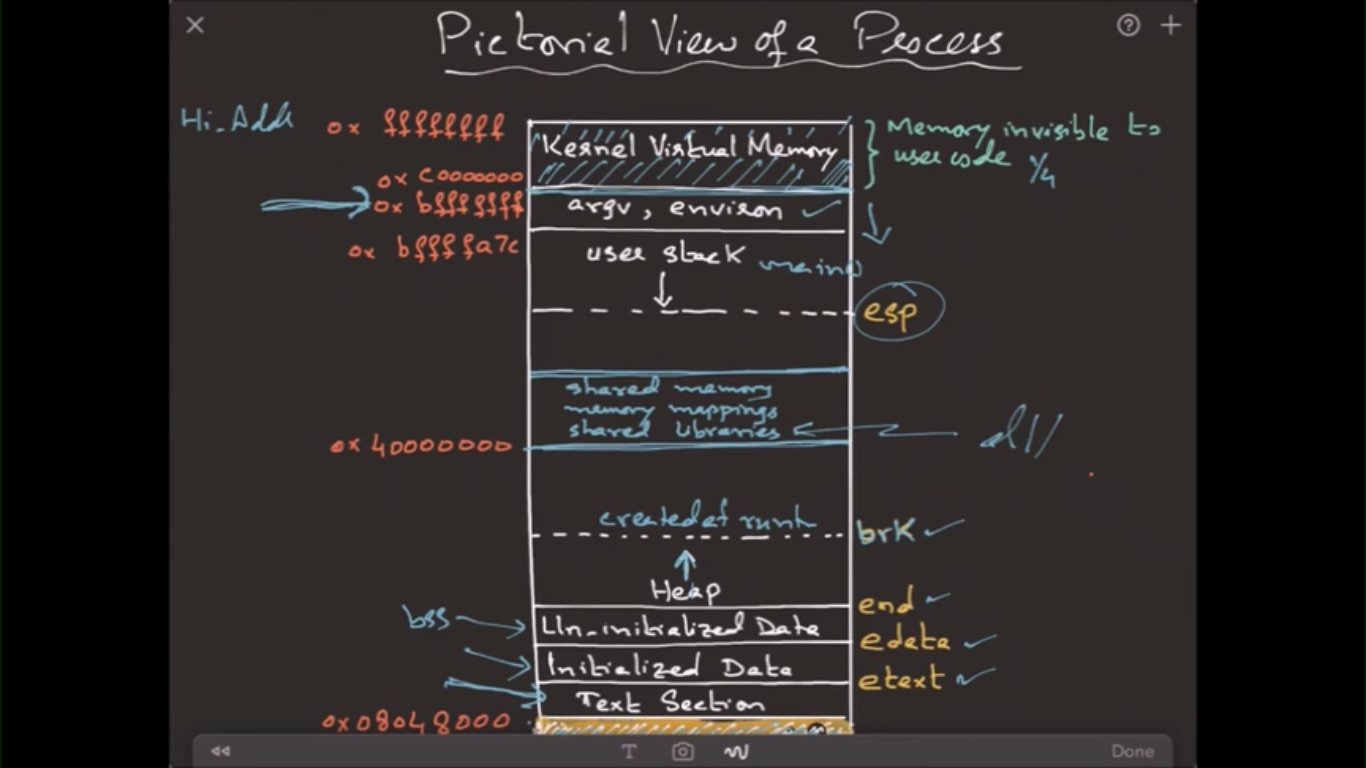 Pictorial View of a Process
Hi. Addr
0x ffffffff
Kernel Virtual Memory
Memory invisible to
user code 1/4
0x c0000000
0x bfffffff
argv, environ
0x bffffa7c
user stack
main()
esp
shared memory
memory mappings
shared libraries
0x 40000000
created at
brk
Heap
end
bss
Un-initialized Data
edata
Initialized Data
etext
Text Section
0x08048000
T
Done